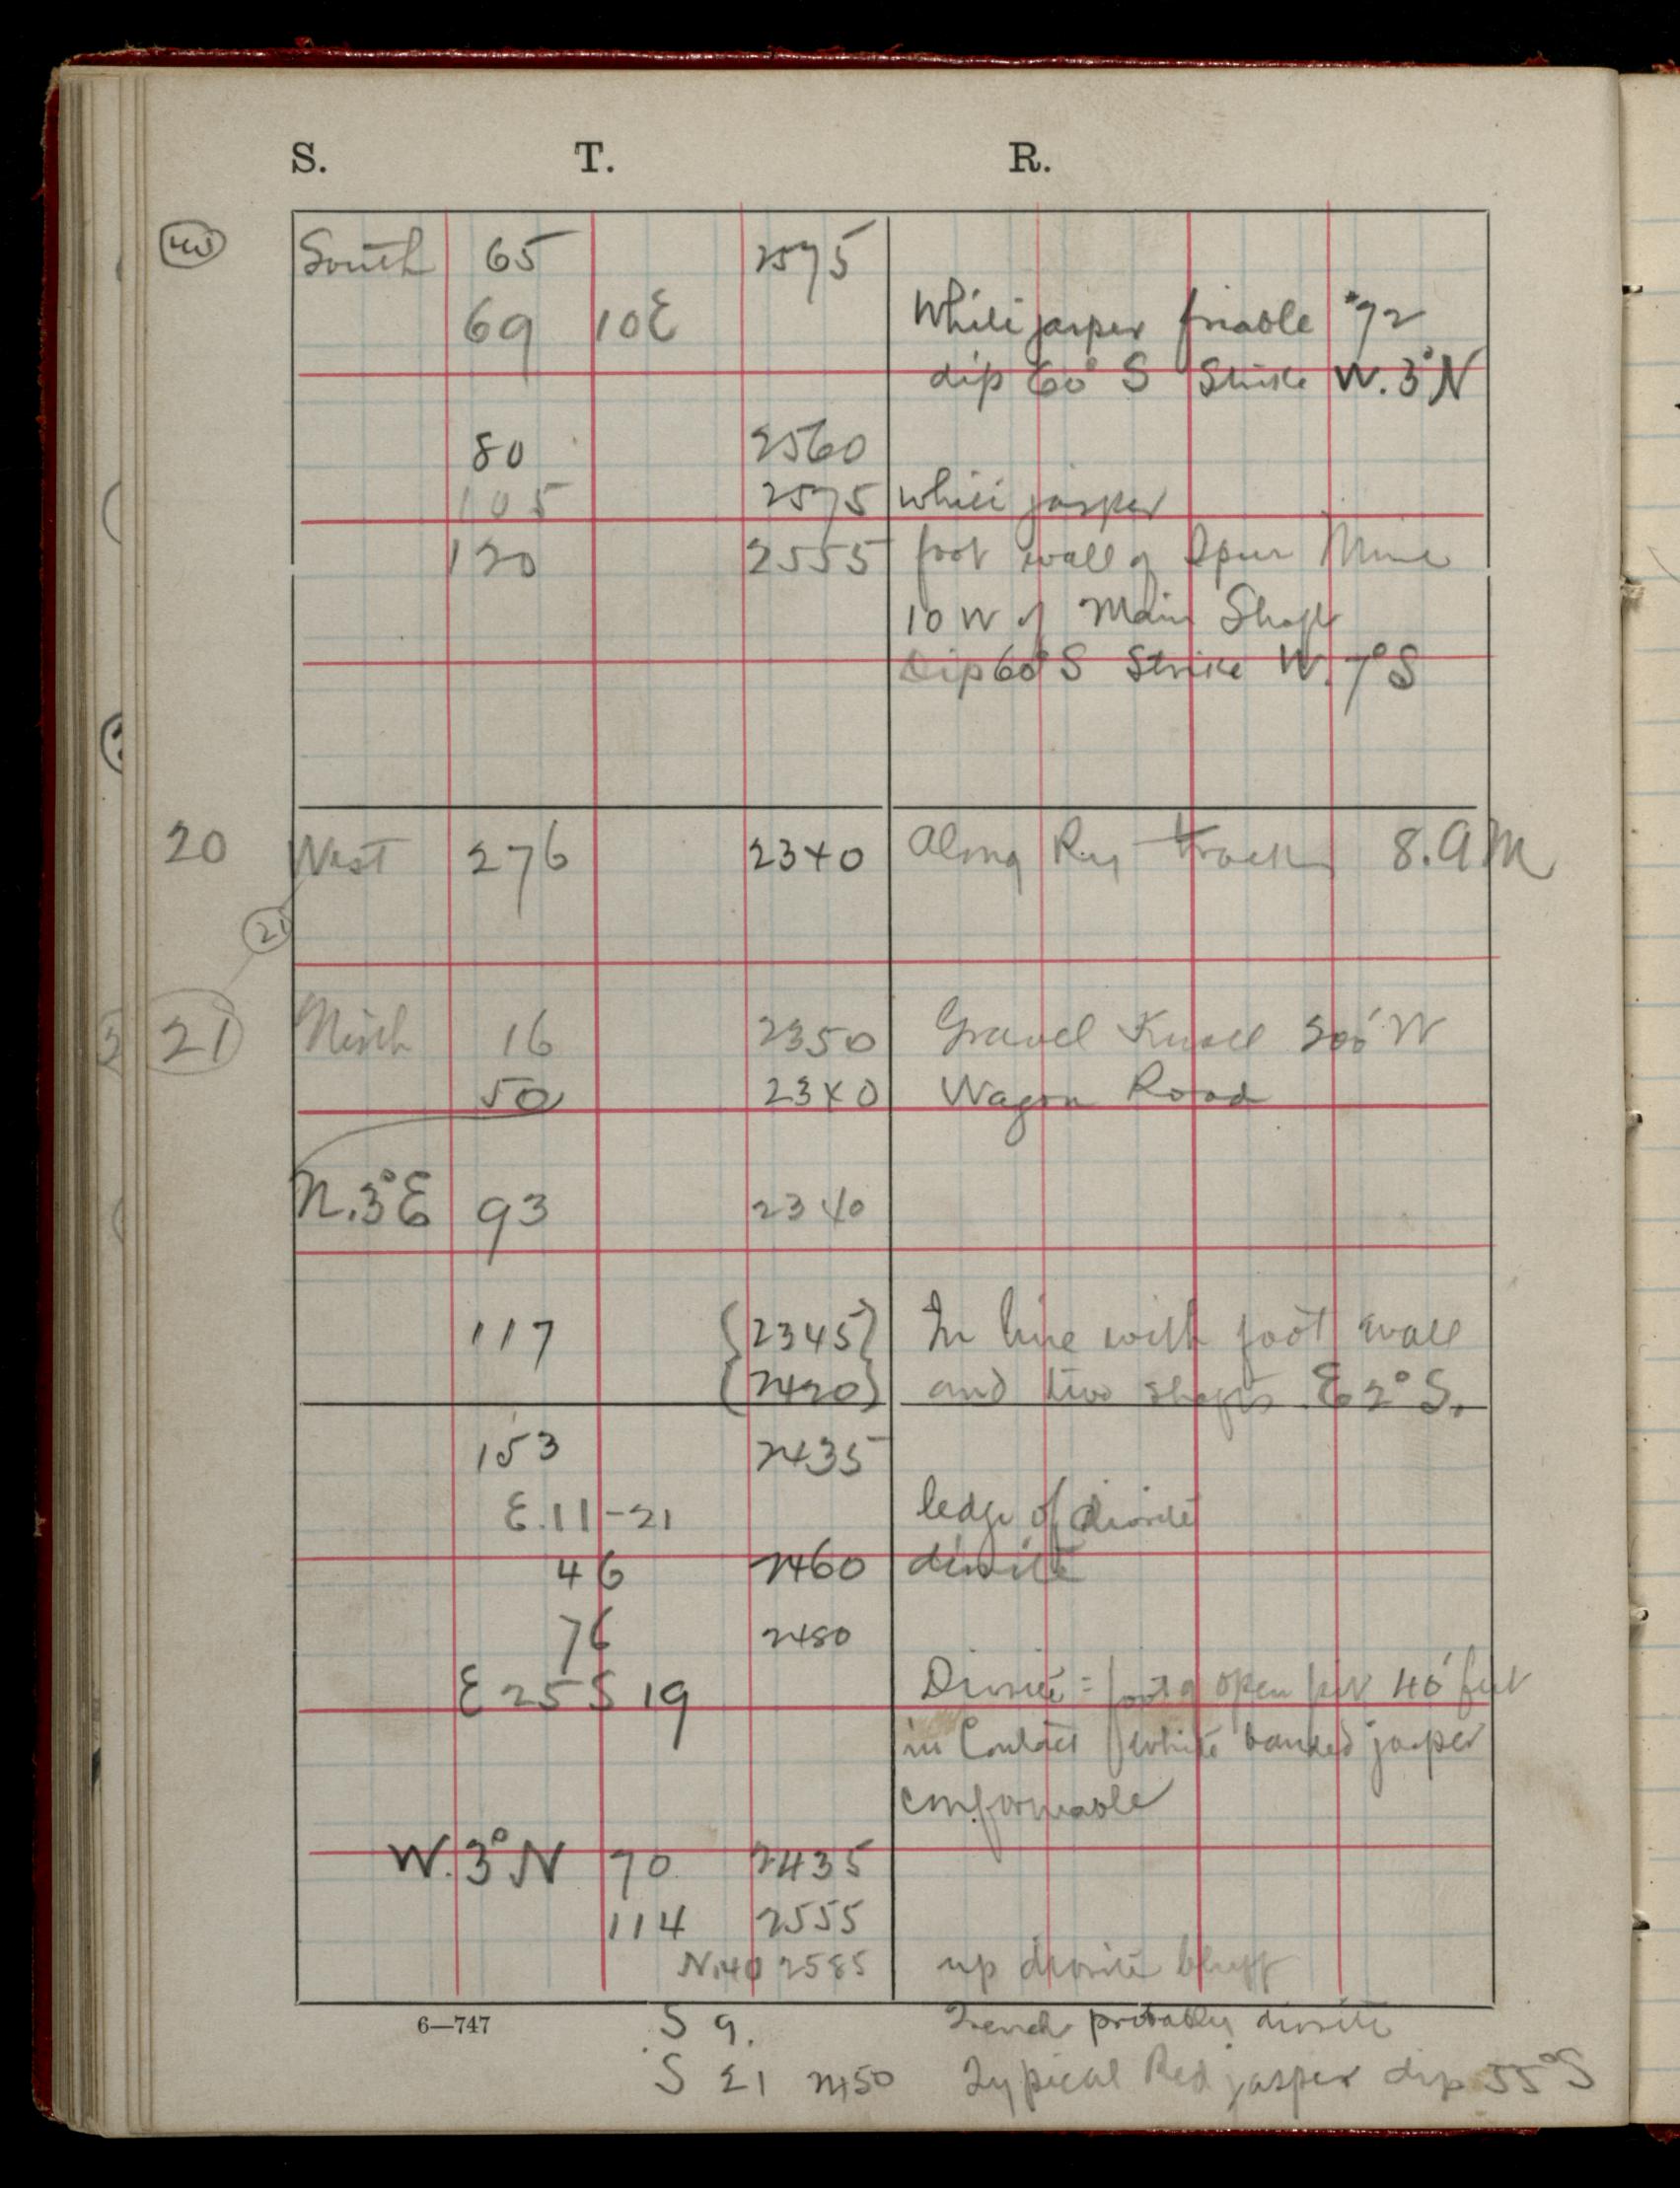 S. T. R.
South 65 2575
69 10E White jasper friable #72
dip 60° S Strike W. 3°N
80 2560
105 2575 White jasper
120 2555 foot wall of Spur Mine
10 W of Main Shaft
Dip 60° S Strike W. 7° S
20 West 276 2340 Along Ry track 8. A M
21
21 North 16 2350 Gravel Knoll 200' W
50 2340 Wagon Road
N. 3° E 93 2340
117 {2345} In line with foot wall
{2420} and two shafts E 2° S.
153 2435
E. 11-21 ledge of diorite
46 2460 diorite
76 2480
E 25 S 19 Diorite = foot of open pit 40' feet
in Contact white banded jasper
conformable
W. 3° N 70 2435
114 2555
N. 40 2585 up diorite bluff
6—747 S 9. Trench probably diorite
S 21 2450 Typical Red jasper dip 55° S